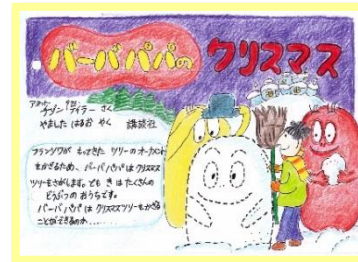 バーバパパの クリスマス
アネット・チゾン タラス・テイラー さく
やました はるお やく 講談社
フランソワが もってきた ツリーの オーナメント
をかざるため、バーバパパは クリスマス
ツリーをさがします。でも きは たくさんの
どうぶつの おうちです。
バーバパパは クリスマスツリーをかざる
ことができるのか……